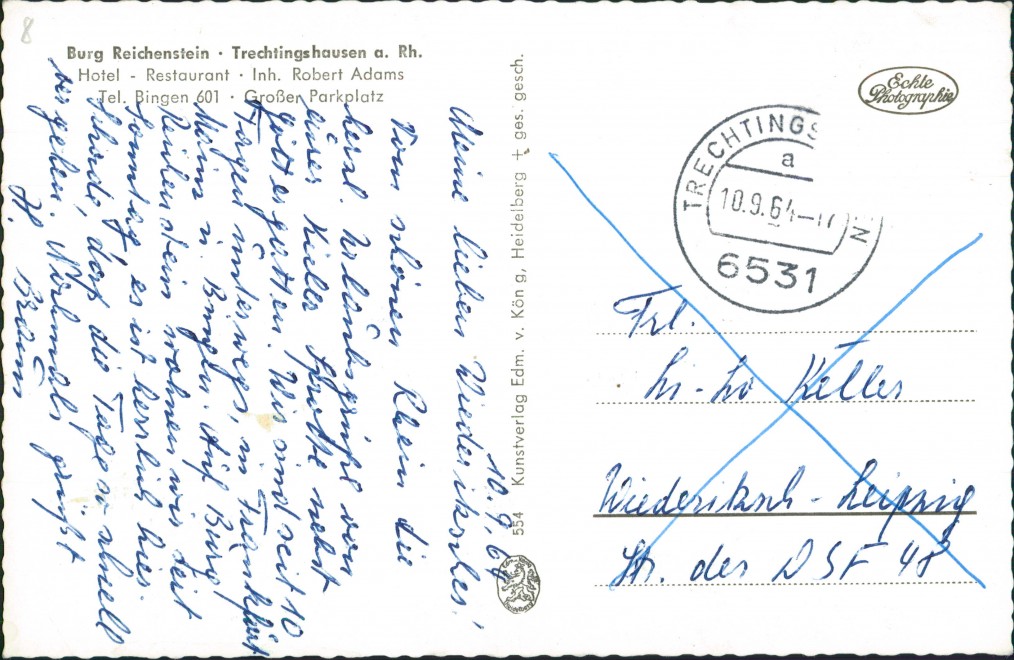 8
Burg Reichenstein · Trechtingshausen a. Rh.
Hotel - Restaurant · Inh. Robert Adams
Tel. Bingen 601 · Großer Parkplatz
10.9.64
Meine lieben Wiederitzscher!
Vom schönen Rhein die
herzl. Urlaubsgrüße von
eurer Keller Grothe nebst
Göttergatten. Wir sind seit 10
Tagen unterwegs, in Frankfurt
Mainz u. Bingen. Auf Burg
Reichenstein wohnen wir seit
Sonntag, es ist herrlich hier.
Schade, daß die Tage so schnell
vergehen. Nochmals grüßt
H.
554 Kunstverlag Edm. v. König, Heidelberg + ges. gesch.
Echte
Photographie
TRECHTINGS
a
10.9.64-17
6531
Frl.
Li-Lo Keller
Wiederitzsch - Leipzig
Str. der DSF 48